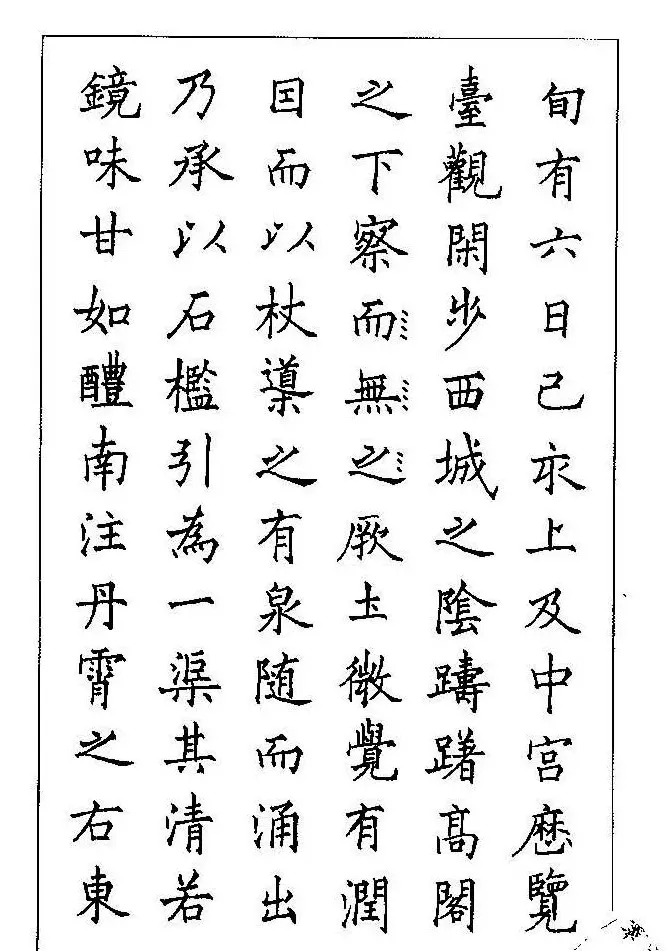 旬有六日己亥上及中宮歷覽
臺觀閑步西城之陰躊躇高閣
之下察而無之厥土微覺有潤
因而以杖導之有泉随而涌出
乃承以石檻引為一渠其清若
鏡味甘如醴南注丹霄之右東